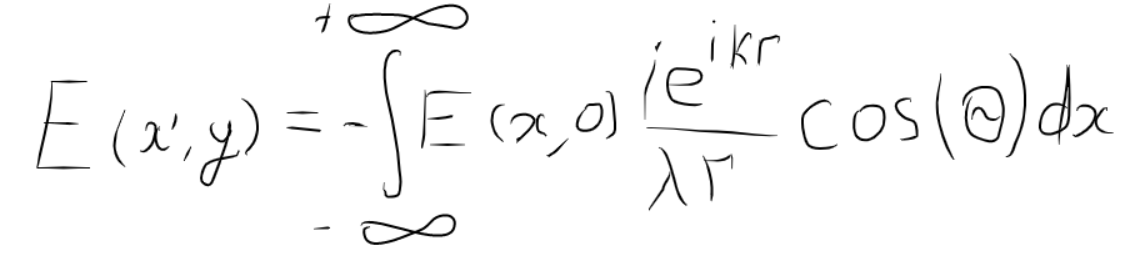 E(x',y) = -∫_{-∞}^{+∞} E(x,0) \frac{ie^{ikr}}{λr} cos(Θ)dx